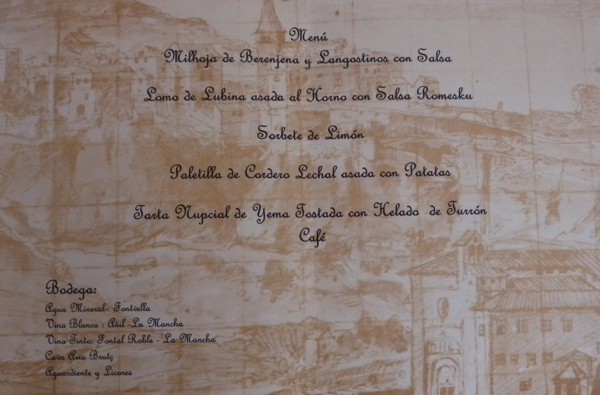 Menú
Milhoja de Berenjena y Langostinos con Salsa
Lomo de Lubina asada al Horno con Salsa Romesku
Sorbete de Limón
Paletilla de Cordero Lechal asada con Patatas
Tarta Nupcial de Yema Tostada con Helado de Turrón
Café
Bodega:
Agua Mineral: Fontvella
Vino Blanco : Añil -La Mancha
Vino Tinto: Fontal Roble - La Mancha
Cava Aria Brut;
Aguardiente y Licores